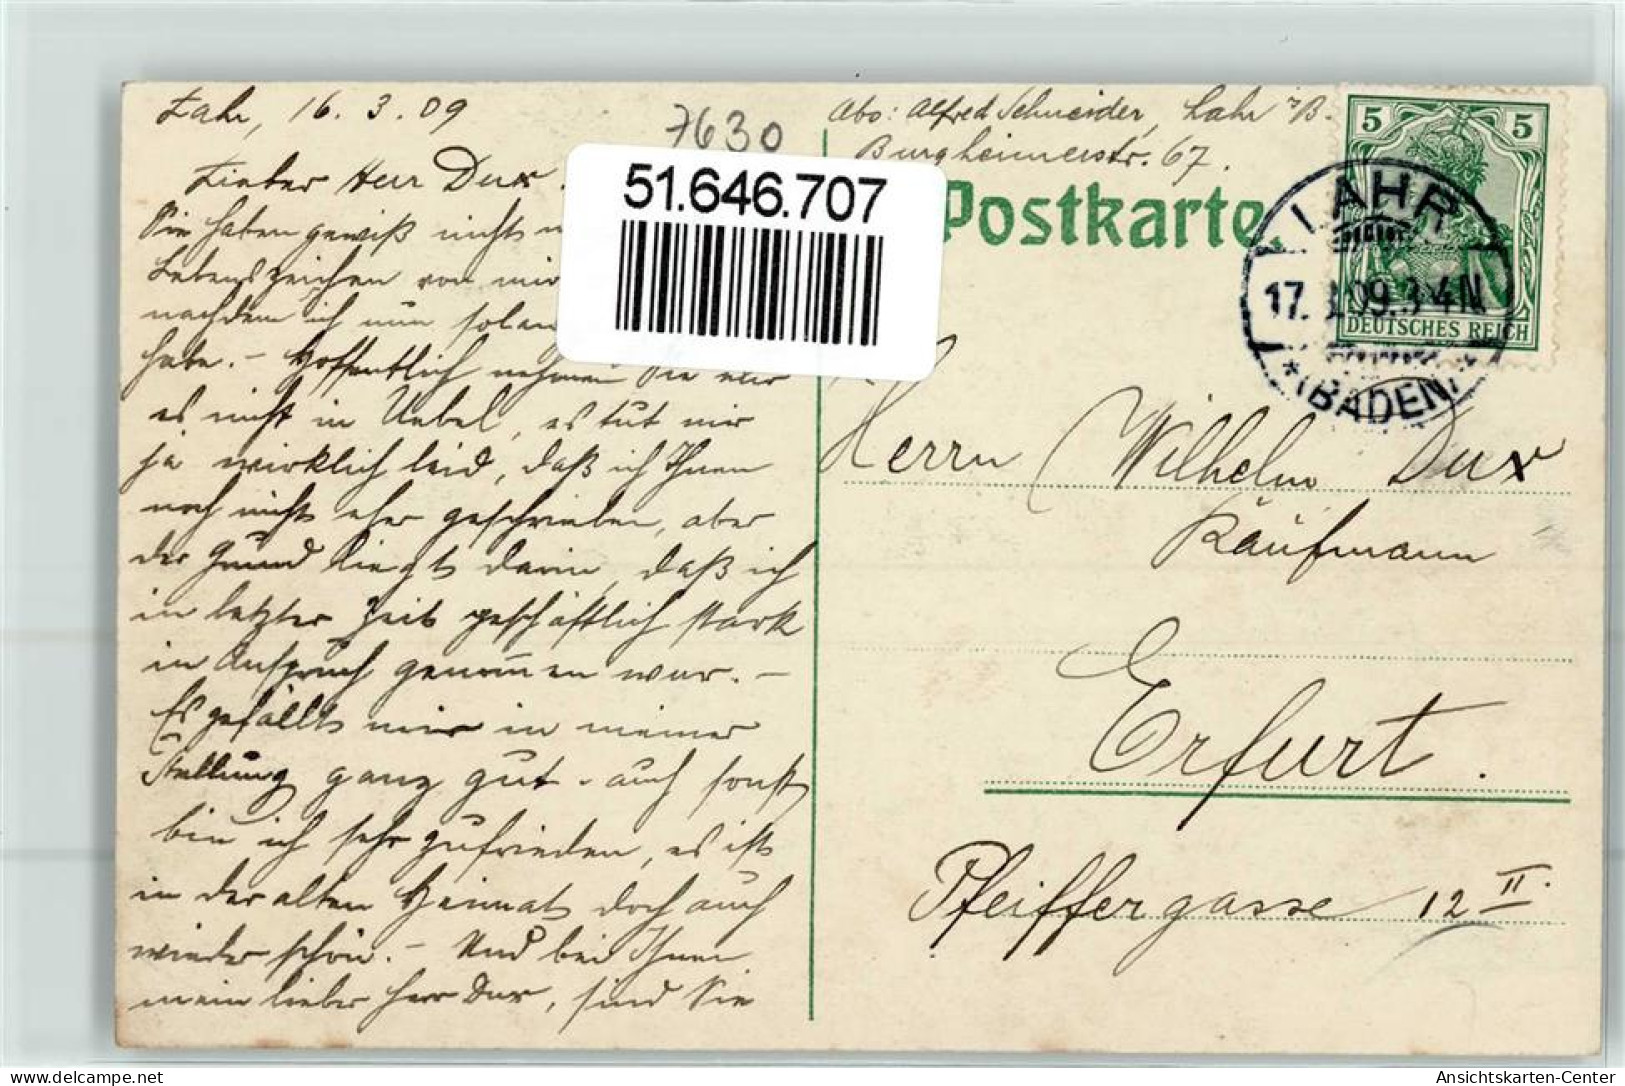 Lahr, 16. 3. 09
7630
Abs: Alfred Schneider, Lahr i/B.
Burgheimerstr. 67.
51.646.707
Postkarte.
5 5
DEUTSCHES REICH
LAHR
17. 3.09. 3-4 N
* (BADEN)
Lieber Herr Dux
Sie haben gewiß nichts
Lebenszeichen von mir
nachdem ich nun solan
habe. – Hoffentlich nehmen Sie mir
es nicht in Uebel, es tut mir
ja wirklich leid, daß ich Ihnen
noch nichts eher geschrieben, aber
der Grund liegt darin, daß ich
in letzter Zeit geschäftlich stark
in Anspruch genom̄en war. –
Es gefällt mir in meiner
Stellung ganz gut. auch sonst
bin ich sehr zufrieden, es ist
in der alten Heimat doch auch
wieder schön. – Und bei Ihnen
mein lieber Herr Dux, sind Sie
Herrn Wilhelm Dux
Kaufmann
Erfurt.
Pfeiffergasse 12 II.
www.delcampe.net
tausendschoen
Ansichtskarten-Center